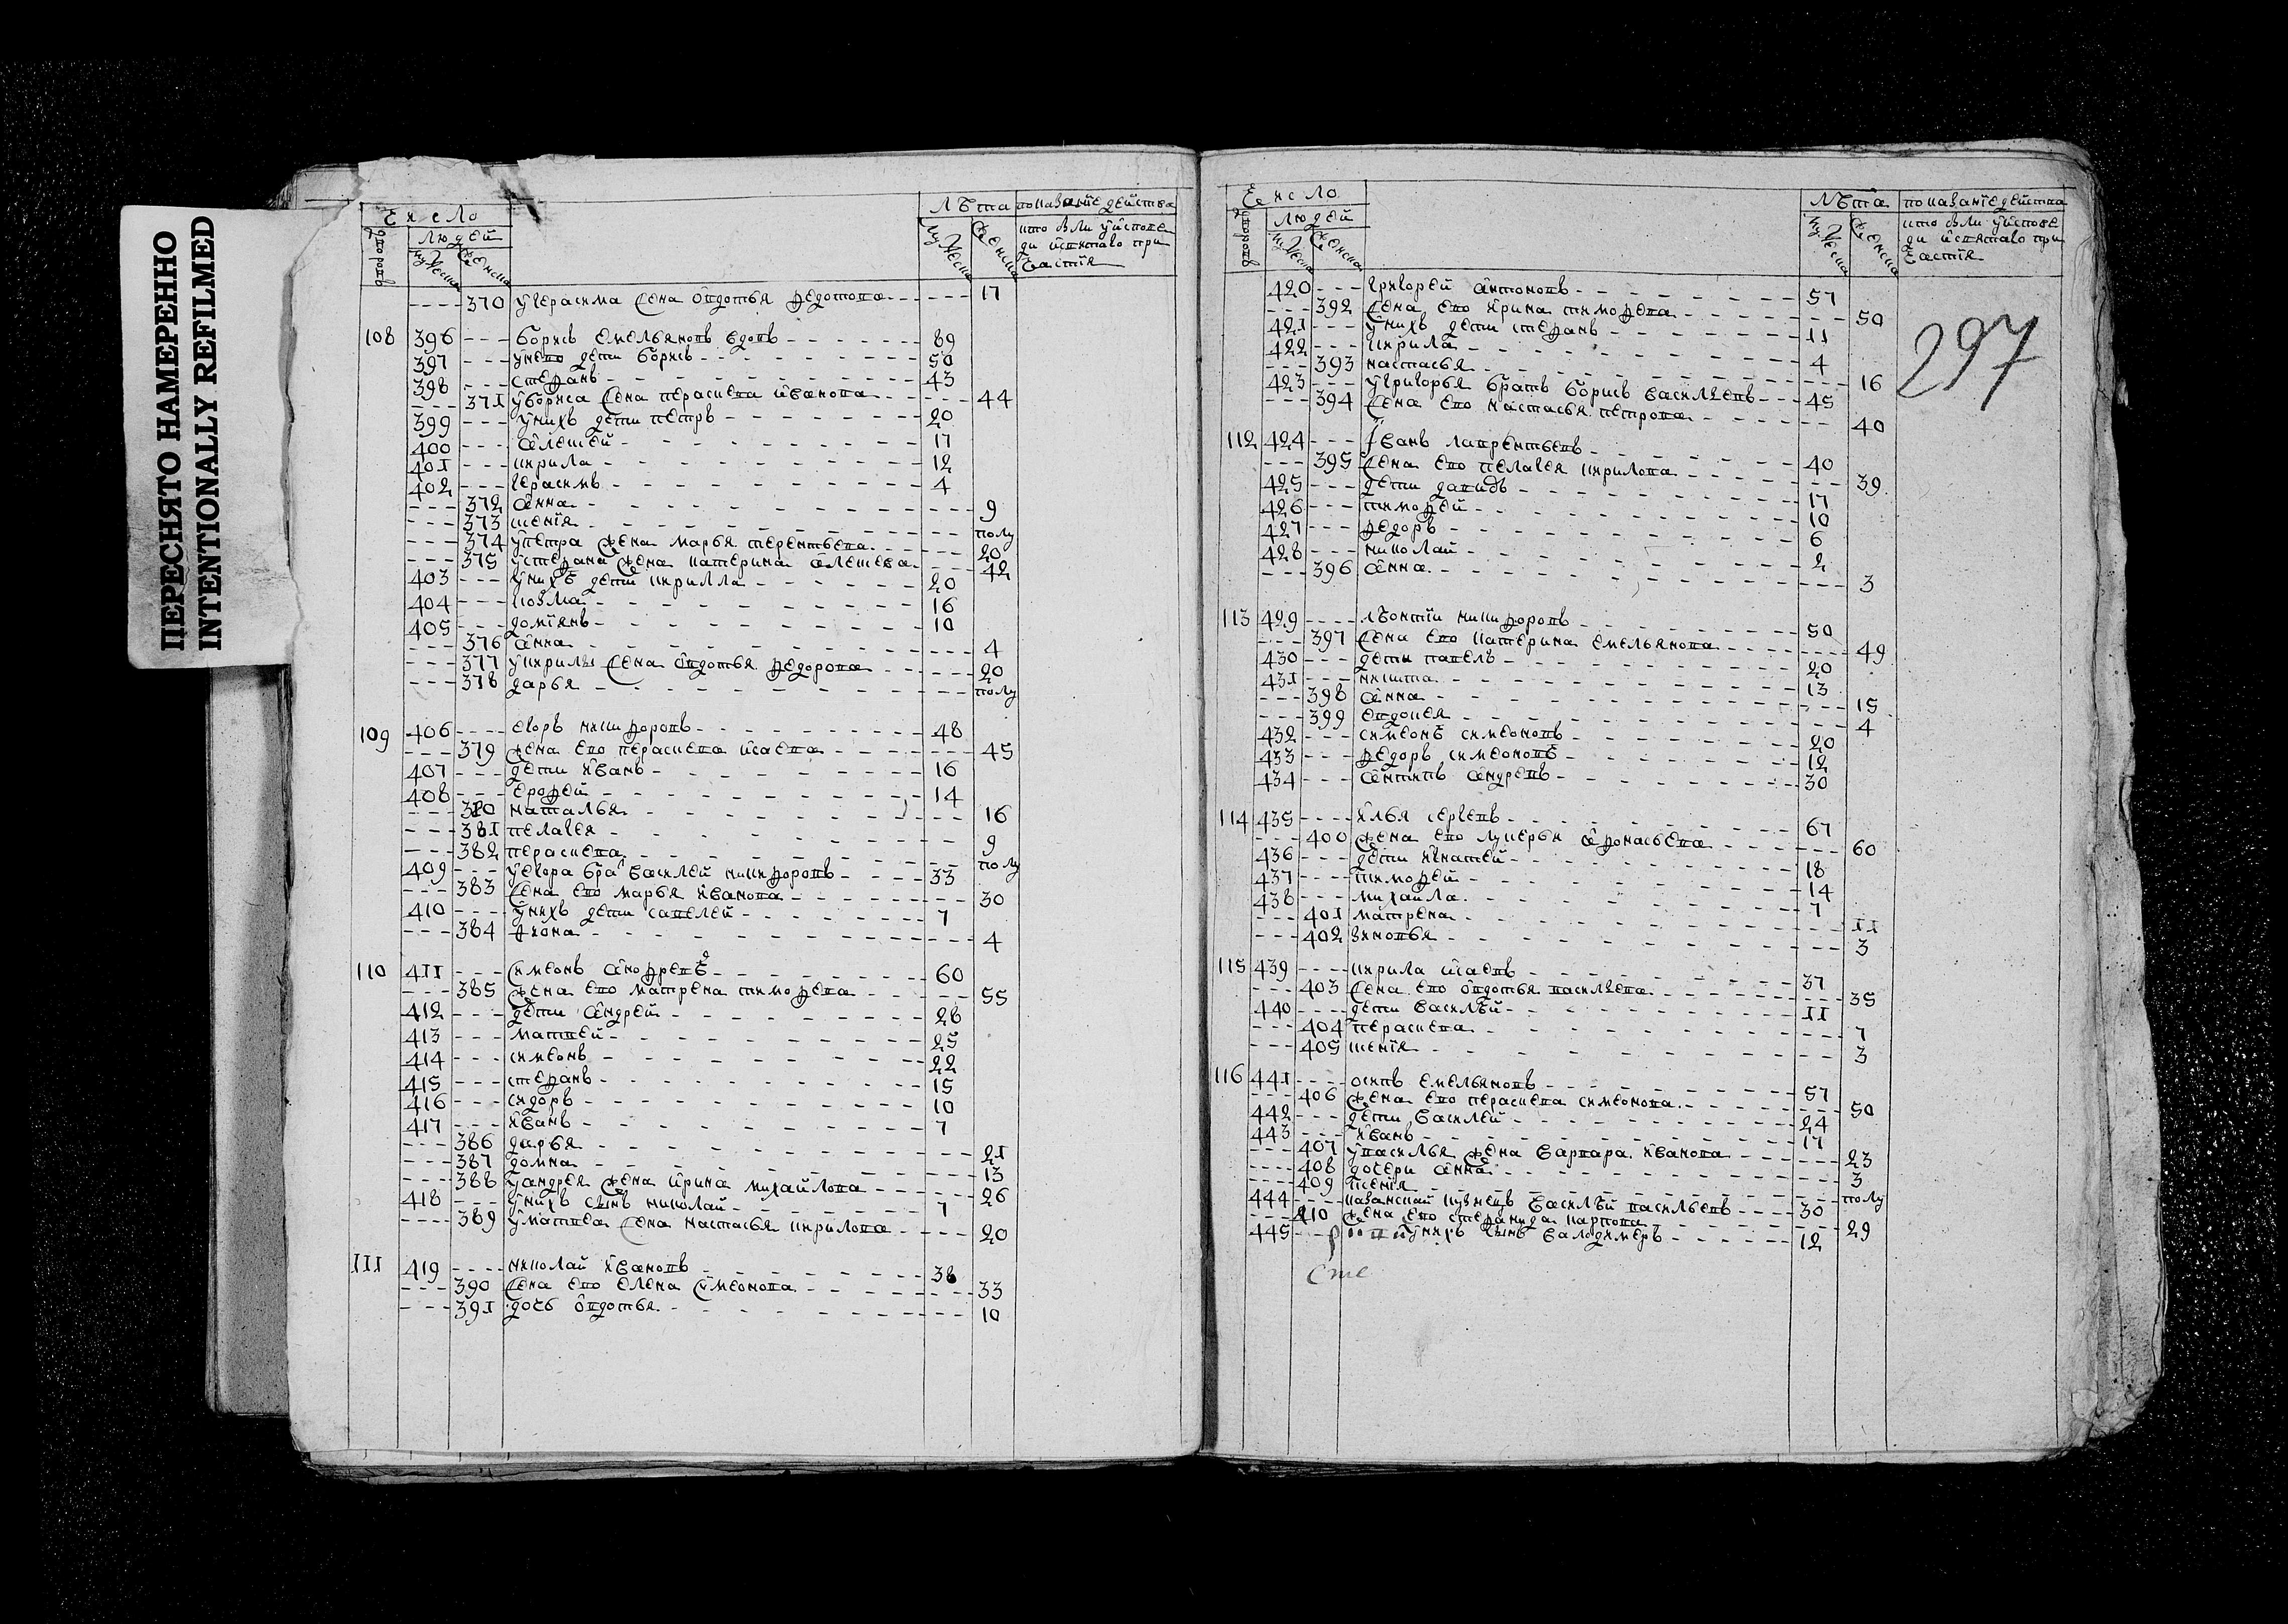 ПЕРЕСНЯТО НАМЕРЕННО
INTENTIONALLY REFILMED
Число
людей
лѣта показание действа
кто были у исповеди и святаго причастия
370 у герасима жена овдотья федотова 17
108 396 борисъ емельяновъ вдовъ 89
397 у него дети борисъ 50
398 стефанъ 43
371 у бориса жена параскева иванова 44
399 у нихъ дети петръ 20
400 алексей 17
401 кирила 12
402 герасимъ 4
372 анна 9
373 ксения полу
374 у петра жена марья терентьева 20
375 у стефана жена катерина алексева 42
403 у нихъ дети кирилла 20
404 козма 16
405 домиянъ 10
376 анна 4
377 у кирилы жена овдотья федорова 20
378 дарья полу
109 406 егоръ никифоровъ 48
379 жена ево пераскева исаева 45
407 дети иванъ 16
408 ерофей 14
380 наталья 16
381 пелагея 9
382 пераскева полу
409 у егора братъ василей никифоровъ 33
383 жена ево марья иванова 30
410 у нихъ дети савелей 7
384 фиона 4
110 411 симеонъ андреевъ 60
385 жена ево матрена тимофева 55
412 дети андрей 28
413 матвей 25
414 симеонъ 22
415 стефанъ 15
416 сидоръ 10
417 иванъ 7
386 дарья 21
387 домна 13
388 у андрея жена ирина михайлова 26
418 у нихъ сынъ николай 7
389 у матвея жена настасья кирилова 20
111 419 николай ивановъ 38
390 жена ево елена симеонова 33
391 дочь овдотья 10
Число
людей
лѣта показание действа
кто были у исповеди и святаго причастия
297
420 григорей антоновъ 57
392 жена ево ирина тимофева 50
421 у нихъ дети стефанъ 11
422 кирила 4
393 настасья 16
423 у григорья братъ борисъ васильевъ 45
394 жена ево настасья петрова 40
112 424 иванъ лаврентьевъ 40
395 жена ево пелагея кирилова 39
425 дети давидъ 17
426 тимофей 10
427 федоръ 6
428 николай 2
396 анна 3
113 429 лѣонтий никифоровъ 50
397 жена ево катерина емельянова 49
430 дети павелъ 20
431 никита 13
398 анна 15
399 евдокея 4
432 симеонъ симеоновъ 20
433 федоръ симеоновъ 12
434 антипъ андревъ 30
114 435 илья сергевъ 67
400 жена ево лукерья афонасьева 60
436 дети игнатей 18
437 тимофей 14
438 михайла 7
401 матрена 11
402 зиновья 3
115 439 кирила исаевъ 37
403 жена ево овдотья васильева 35
440 дети василѣй 11
404 пераскева 7
405 ксения 3
116 441 осипъ емельяновъ 57
406 жена ево пераскева симеонова 50
442 дети василей 24
443 иванъ 17
407 у василья жена варвара иванова 23
408 дочери анна 3
409 ксения полу
444 казанской кузнецъ василѣй васильевъ 30
410 жена ево стефанида карпова 29
445 у нихъ сынъ валодимеръ 12